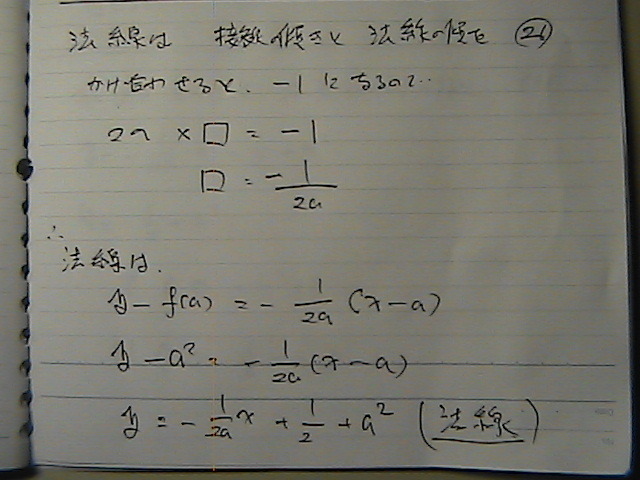 法線は 接線の傾きと 法線の傾きを ㉖
かけ合わせると、-1になるので‥
2a × □ = -1
□ = -1/2a
∴
法線は、
y - f(a) = - 1/2a (x - a)
y - a² = - 1/2a (x - a)
y = - 1/2a x + 1/2 + a² (法線)